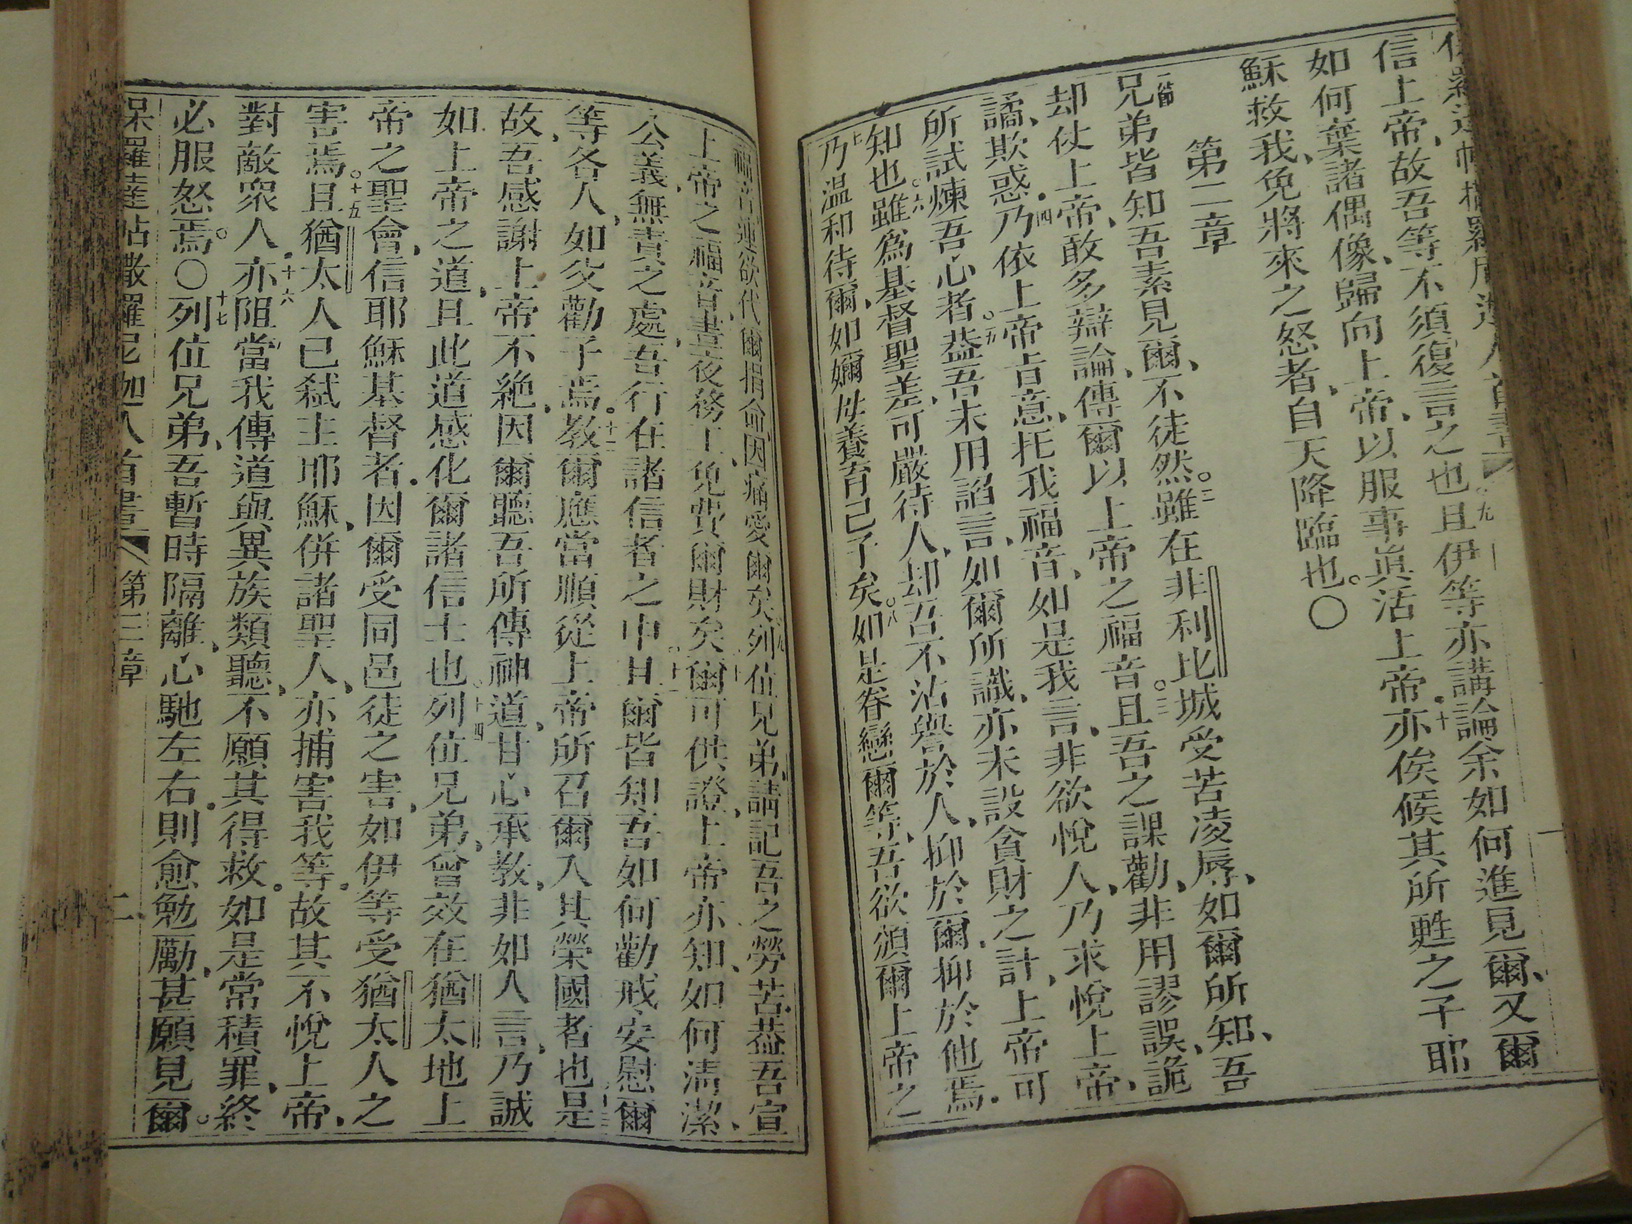 信上帝、故吾等不須復言之也、九且伊等亦講論余如何進見爾、又爾
如何棄諸偶像、歸向上帝、以服事眞活上帝、十亦俟候其所甦之子耶
穌、救我免將來之怒者、自天降臨也。〇
第二章
一節兄弟皆知吾素見爾、不徒然。二雖在非利比城受苦凌辱、如爾所知、吾
却仗上帝、敢多辯論、傳爾以上帝之福音。三且吾之課勸、非用謬誤、詭
譎、欺惑。四乃依上帝旨意、托我福音、如是我言、非欲悅人、乃求悅上帝、
所試煉吾心者。五葢吾未用諂言、如爾所識、亦未設貪財之計、上帝可
知也。六雖為基督聖差、可嚴待人、却吾不沽譽於人、抑於爾、抑於他焉。
七乃温和待爾、如嬭母養育己子矣。八如是眷戀爾等、吾欲頒爾上帝之
福音、連欲代爾捐命、因痛愛爾矣。九列位兄弟、請記吾之勞苦、葢吾宣
上帝之福音、晝夜務工、免費爾財矣。十爾可供證、上帝亦知、如何清潔、
公義、無責之處、吾行在諸信者之中、十一且爾皆知、吾如何勸戒、安慰爾
等各人、如父勸子焉。十二教爾應當順從上帝所召爾入其榮國者也、是
故、吾感謝上帝不絶、因爾聽吾所傳神道、甘心承教、非如人言、乃誠
如上帝之道、且此道感化爾諸信士也。十四列位兄弟、曾效在猶太地上
帝之聖會、信耶穌基督者、因爾受同邑徒之害、如伊等受猶太人之
害焉。十五且猶太人已弒主耶穌、併諸聖人、亦捕害我等。故其不悅上帝、
對敵衆人。十六亦阻當我傳道與異族類聽、不願其得救。如是常積罪、終
必服怒焉。〇十七列位兄弟、吾暫時隔離、心馳左右、則愈勉勵、甚願見爾。
保羅達帖撒羅尼迦人首書 第三章 二